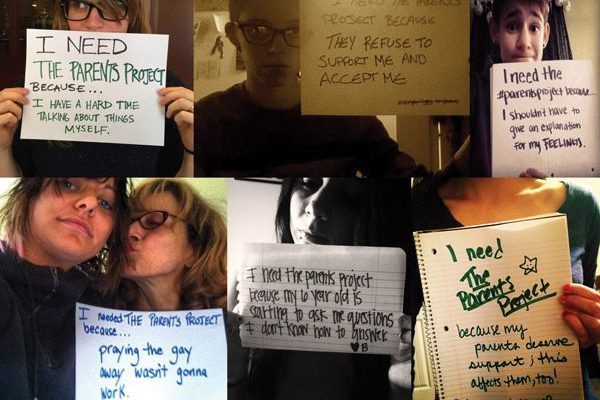 I NEED
THE PARENTS PROJECT
BECAUSE...
I HAVE A HARD TIME
TALKING ABOUT THINGS
MYSELF.
I NEED THE PARENTS
PROJECT BECAUSE
THEY REFUSE TO
SUPPORT ME AND
ACCEPT ME
I need the
#parentsproject because...
I shouldn't have to
give an explanation
for my FEELINGS.
I needed THE PARENTS PROJECT
because...
praying the gay
away wasn't gonna
work.
I need the parents project
because my 6 year old is
starting to ask me questions
I don't know how to answer
B
I need
The
Parents
Project
because my
parents deserve
support; this
affects them, too!